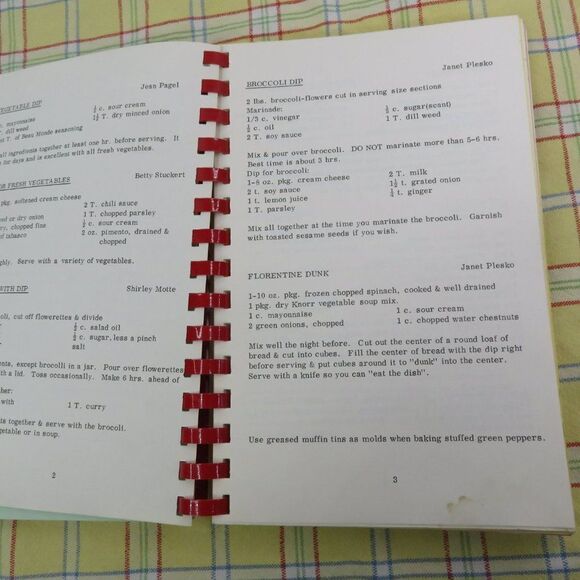 Jean Pagel
VEGETABLE DIP
mayonnaise
½ c. sour cream
dill weed
1½ T. dry minced onion
T. of Beau Monde seasoning
all ingredients together at least one hr. before serving. It
for days and is excellent with all fresh vegetables.
FOR FRESH VEGETABLES
Betty Stuckert
pkg. softened cream cheese
2 T. chili sauce
1 T. chopped parsley
or dry onion
½ c. sour cream
chopped fine
2 oz. pimento, drained &
of tabasco
chopped
Serve with a variety of vegetables.
WITH DIP
Shirley Motte
cut off flowerettes & divide
½ c. salad oil
½ c. sugar, less a pinch
salt
except broccoli in a jar. Pour over flowerettes
with a lid. Toss occasionally. Make 6 hrs. ahead of
1 T. curry
together & serve with the brocoli.
or in soup.
2
Janet Plesko
BROCCOLI DIP
2 lbs. broccoli-flowers cut in serving size sections
Marinade:
½ c. sugar(scant)
1/3 c. vinegar
1 T. dill weed
½ c. oil
2 T. soy sauce
Mix & pour over broccoli. DO NOT marinate more than 5-6 hrs.
Best time is about 3 hrs.
Dip for broccoli:
2 T. milk
1-8 oz. pkg. cream cheese
1½ t. grated onion
2 t. soy sauce
¼ t. ginger
1 t. lemon juice
1 T. parsley
Mix all together at the time you marinate the broccoli. Garnish
with toasted sesame seeds if you wish.
FLORENTINE DUNK
Janet Plesko
1-10 oz. pkg. frozen chopped spinach, cooked & well drained
1 pkg. dry Knorr vegetable soup mix.
1 c. mayonnaise
1 c. sour cream
2 green onions, chopped
1 c. chopped water chestnuts
Mix well the night before. Cut out the center of a round loaf of
bread & cut into cubes. Fill the center of bread with the dip right
before serving & put cubes around it to "dunk" into the center.
Serve with a knife so you can "eat the dish".
Use greased muffin tins as molds when baking stuffed green peppers.
3